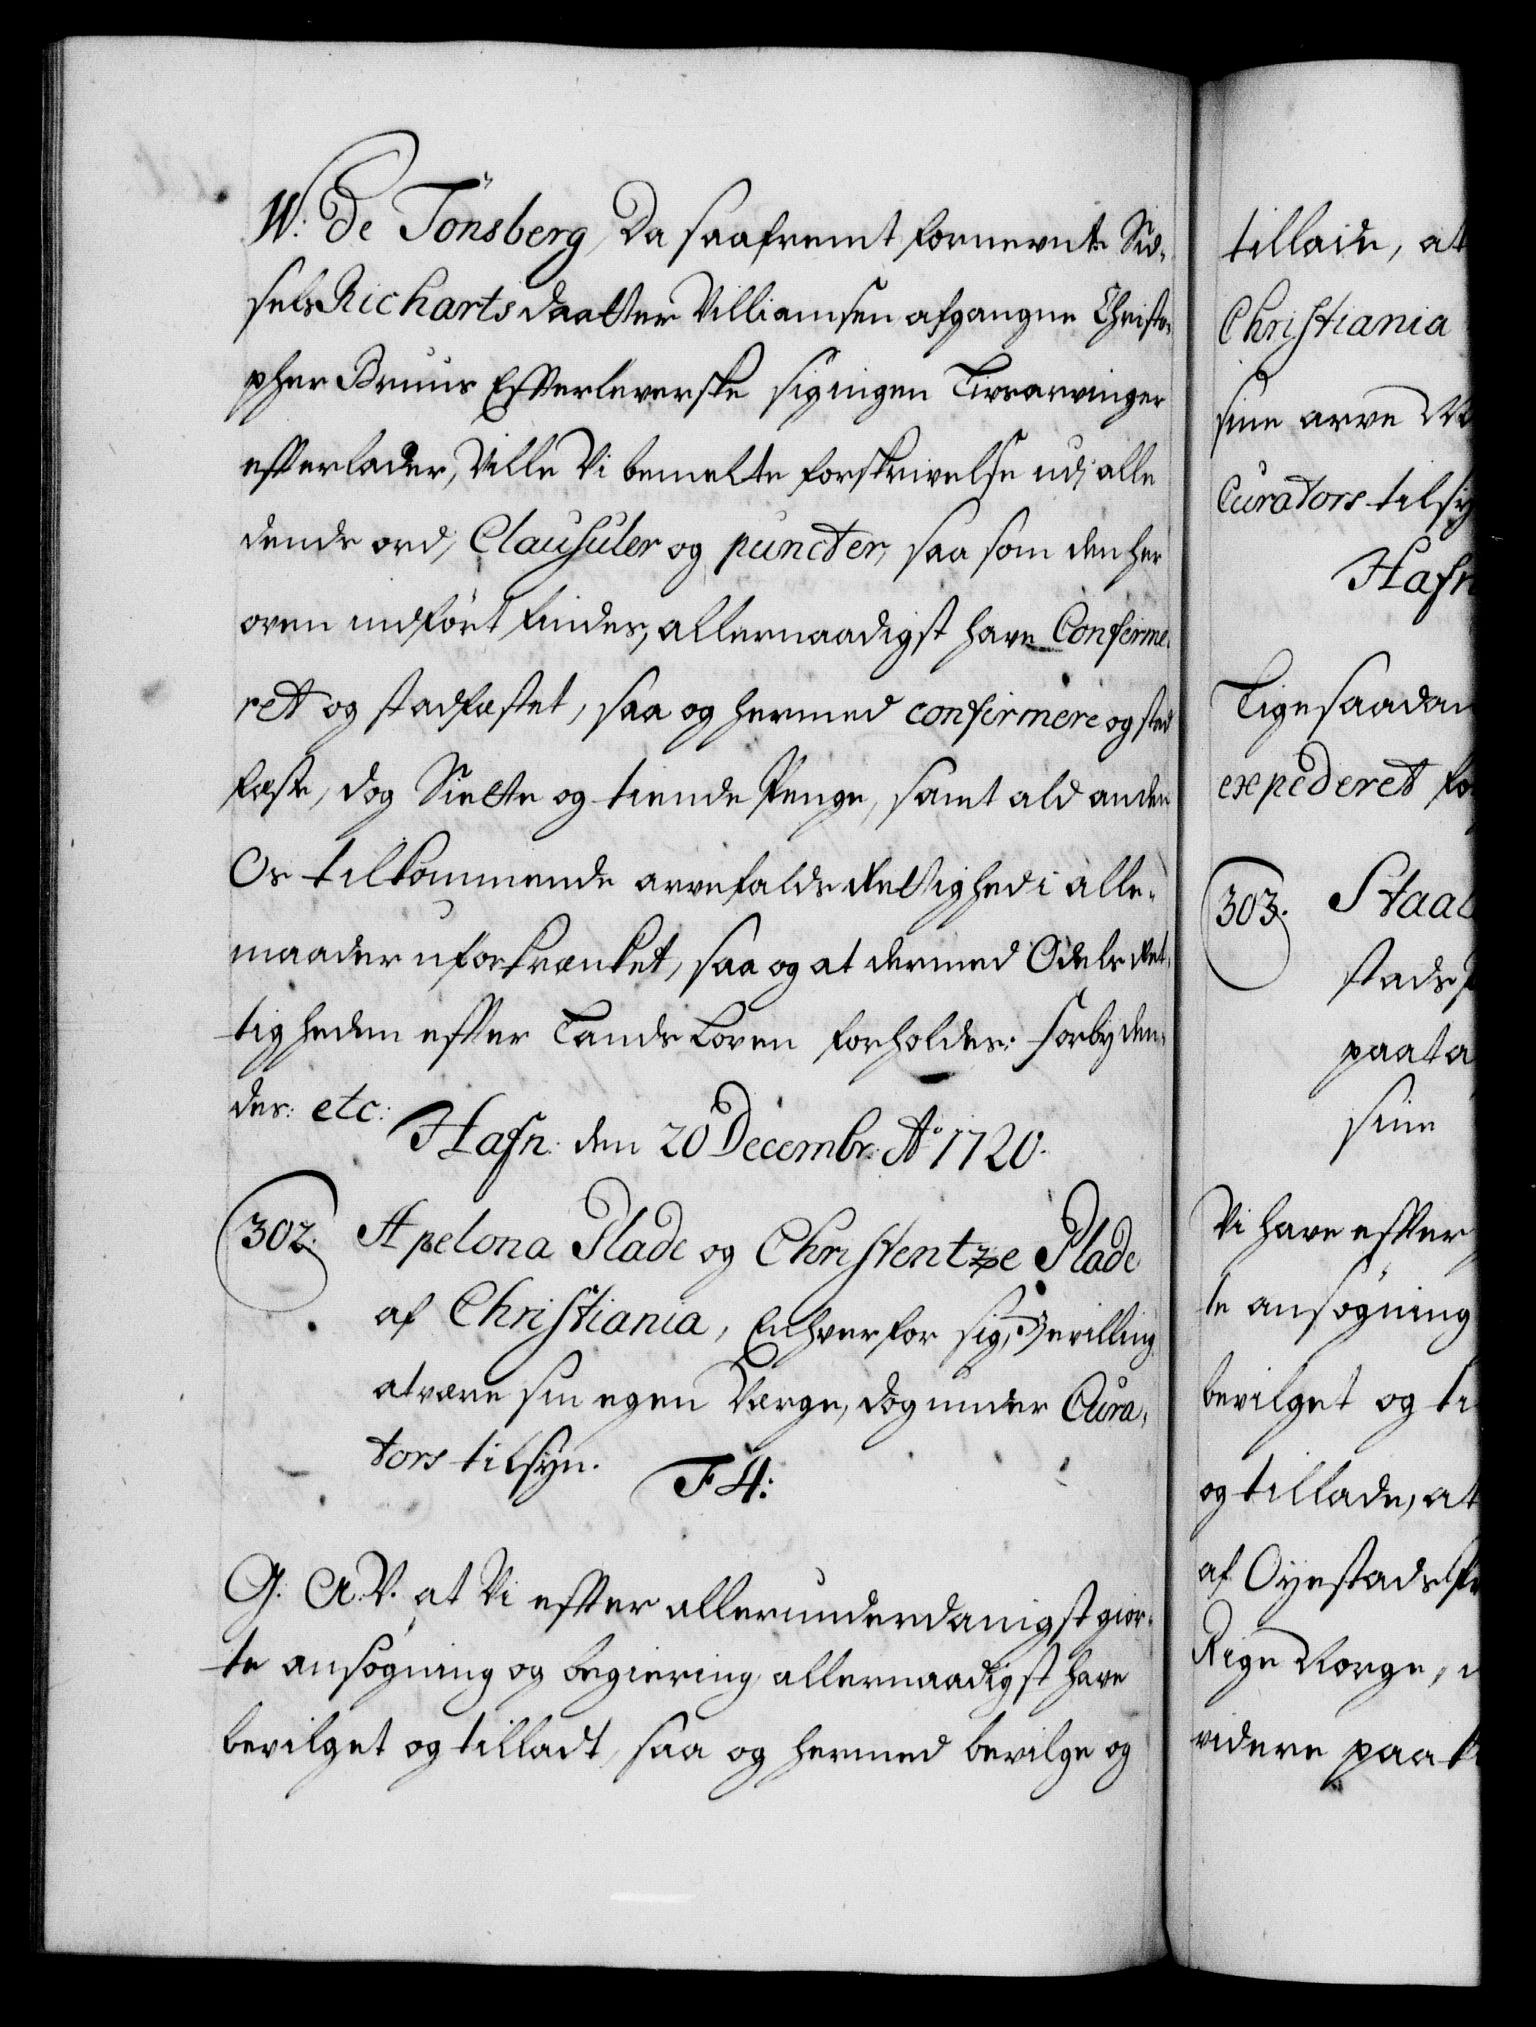 W: de Tönsberg, Da saafremt fornevnte Sid,
sels Richarts daatter Villiamsen afgangne Christo,
pher Bruuns Efterleverske sig ingen Livsarvinger
efterlader, Ville Vi bemelte forskrivelse udj alle
dends ord, Clausuler og puncter, saa som den her
oven indfört findes, allernaadigst have Confirme,
ret og stadfæstet, saa og hermed confirmere og stad
fæste, dog Siette og tiende Penge, samt ald anden
Os tilkommende arvefalds Rettighed i alle,
maader uforkrænket, saa og at dermed Odels Ret,
tigheden efter Lands Loven forholdes: forbyden,
des: etc:
Hafn: den 20 Decembr: Aº 1720.
302. Apelona Plade og Christentze Plade
af Christiania, Enhver for sig, Bevilling
at være sin egen Værge, dog under Cura,
tors tilsyn.
F4:
G. A. V. at Vi efter allerunderdanigst gior,
te ansögning og begiering allernaadigst have
bevilget og tilladt, saa og hermed bevilge og
tillade, at
Christiania
sine arve
Curators tilsy
Hafn
Ligesaadan
expederet for
303. Staal
stads P
paata
sine
Vi have efter
te ansögning
bevilget og ti
og tillade, at
af Oyestads Pr
Rige Norge,
videre paa